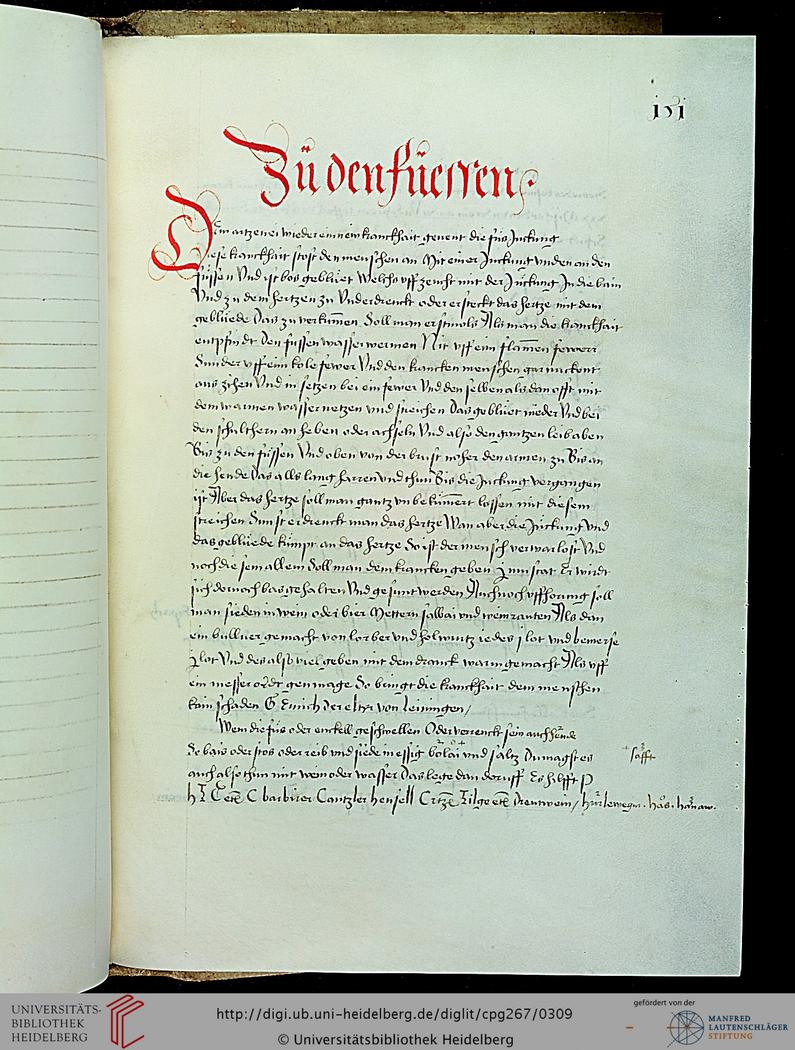 Zu den fuessen
Ein artzenei wieder ein new kranckhait genent die fus Juckung
Diese kranckhait stost den menschen an Mit einer Juckung vnden an den
fussen Vnd ist bos gebluet Welchs vff zeucht mit der Juckung In die bain
Vnd zu dem hertzen zu Vnderdrenckt oder ersteckt das hertze mit dem
gebluede Das zu verkumen Soll man erstmols Als man die kranckhait
entpfindt Den fussen wasser wermen Nit vff eim flamen fewerr
Sunder vff eim kole fewer Vnd den krancken menschen gar nackent
aus zihen Vnd in setzen bei ein fewer Vnd den selben als dan offt mit
dem warmen wasser netzen vnd streichen Das gebluet nieder Vnd bei
den schulthern an heben oder achseln Vnd also den gantzen leib aben
Bis zu den fussen Vnd oben von der brust noher den armen zu Bis an
die hende Das alls lang harren vnd thun Bis die Juckung vergangen
ist Aber das hertze soll man gantz vnbekumert lossen mit diesem
streichen Sunst erdrenckt man das hertze Wan aber die Juckung vnd
das gebluede kumpt an das hertze So ist der mensch verwarlost Vnd
noch diesem allem Soll man dem krancken geben Er wirdt
sich dornoch bas gehalten Vnd gesunt werden Auch noch vffhorung soll
man sieden in wein oder bier Mettern salbai vnd weinrauten Als dan
ein bulluer gemacht von lorber vnd holwurtz iedes j lot vnd
lot Vnd des also viel geben mit dem dranck warm gemacht Als vff
ein messer ordt gen mage So bringt die kranckhait dem menschen
kain schaden G Emich der elter von Leiningen
Wem die fus oder enckell geschwellen Oder verrenckt sein auch hende
So bais oder stos oder reib vnd siede in essig bolai vnd saltz Du magst es
safft
auch also thun mit wein oder wasser Das lege dan doruff Es hilfft
barbirer Cantzler hensell